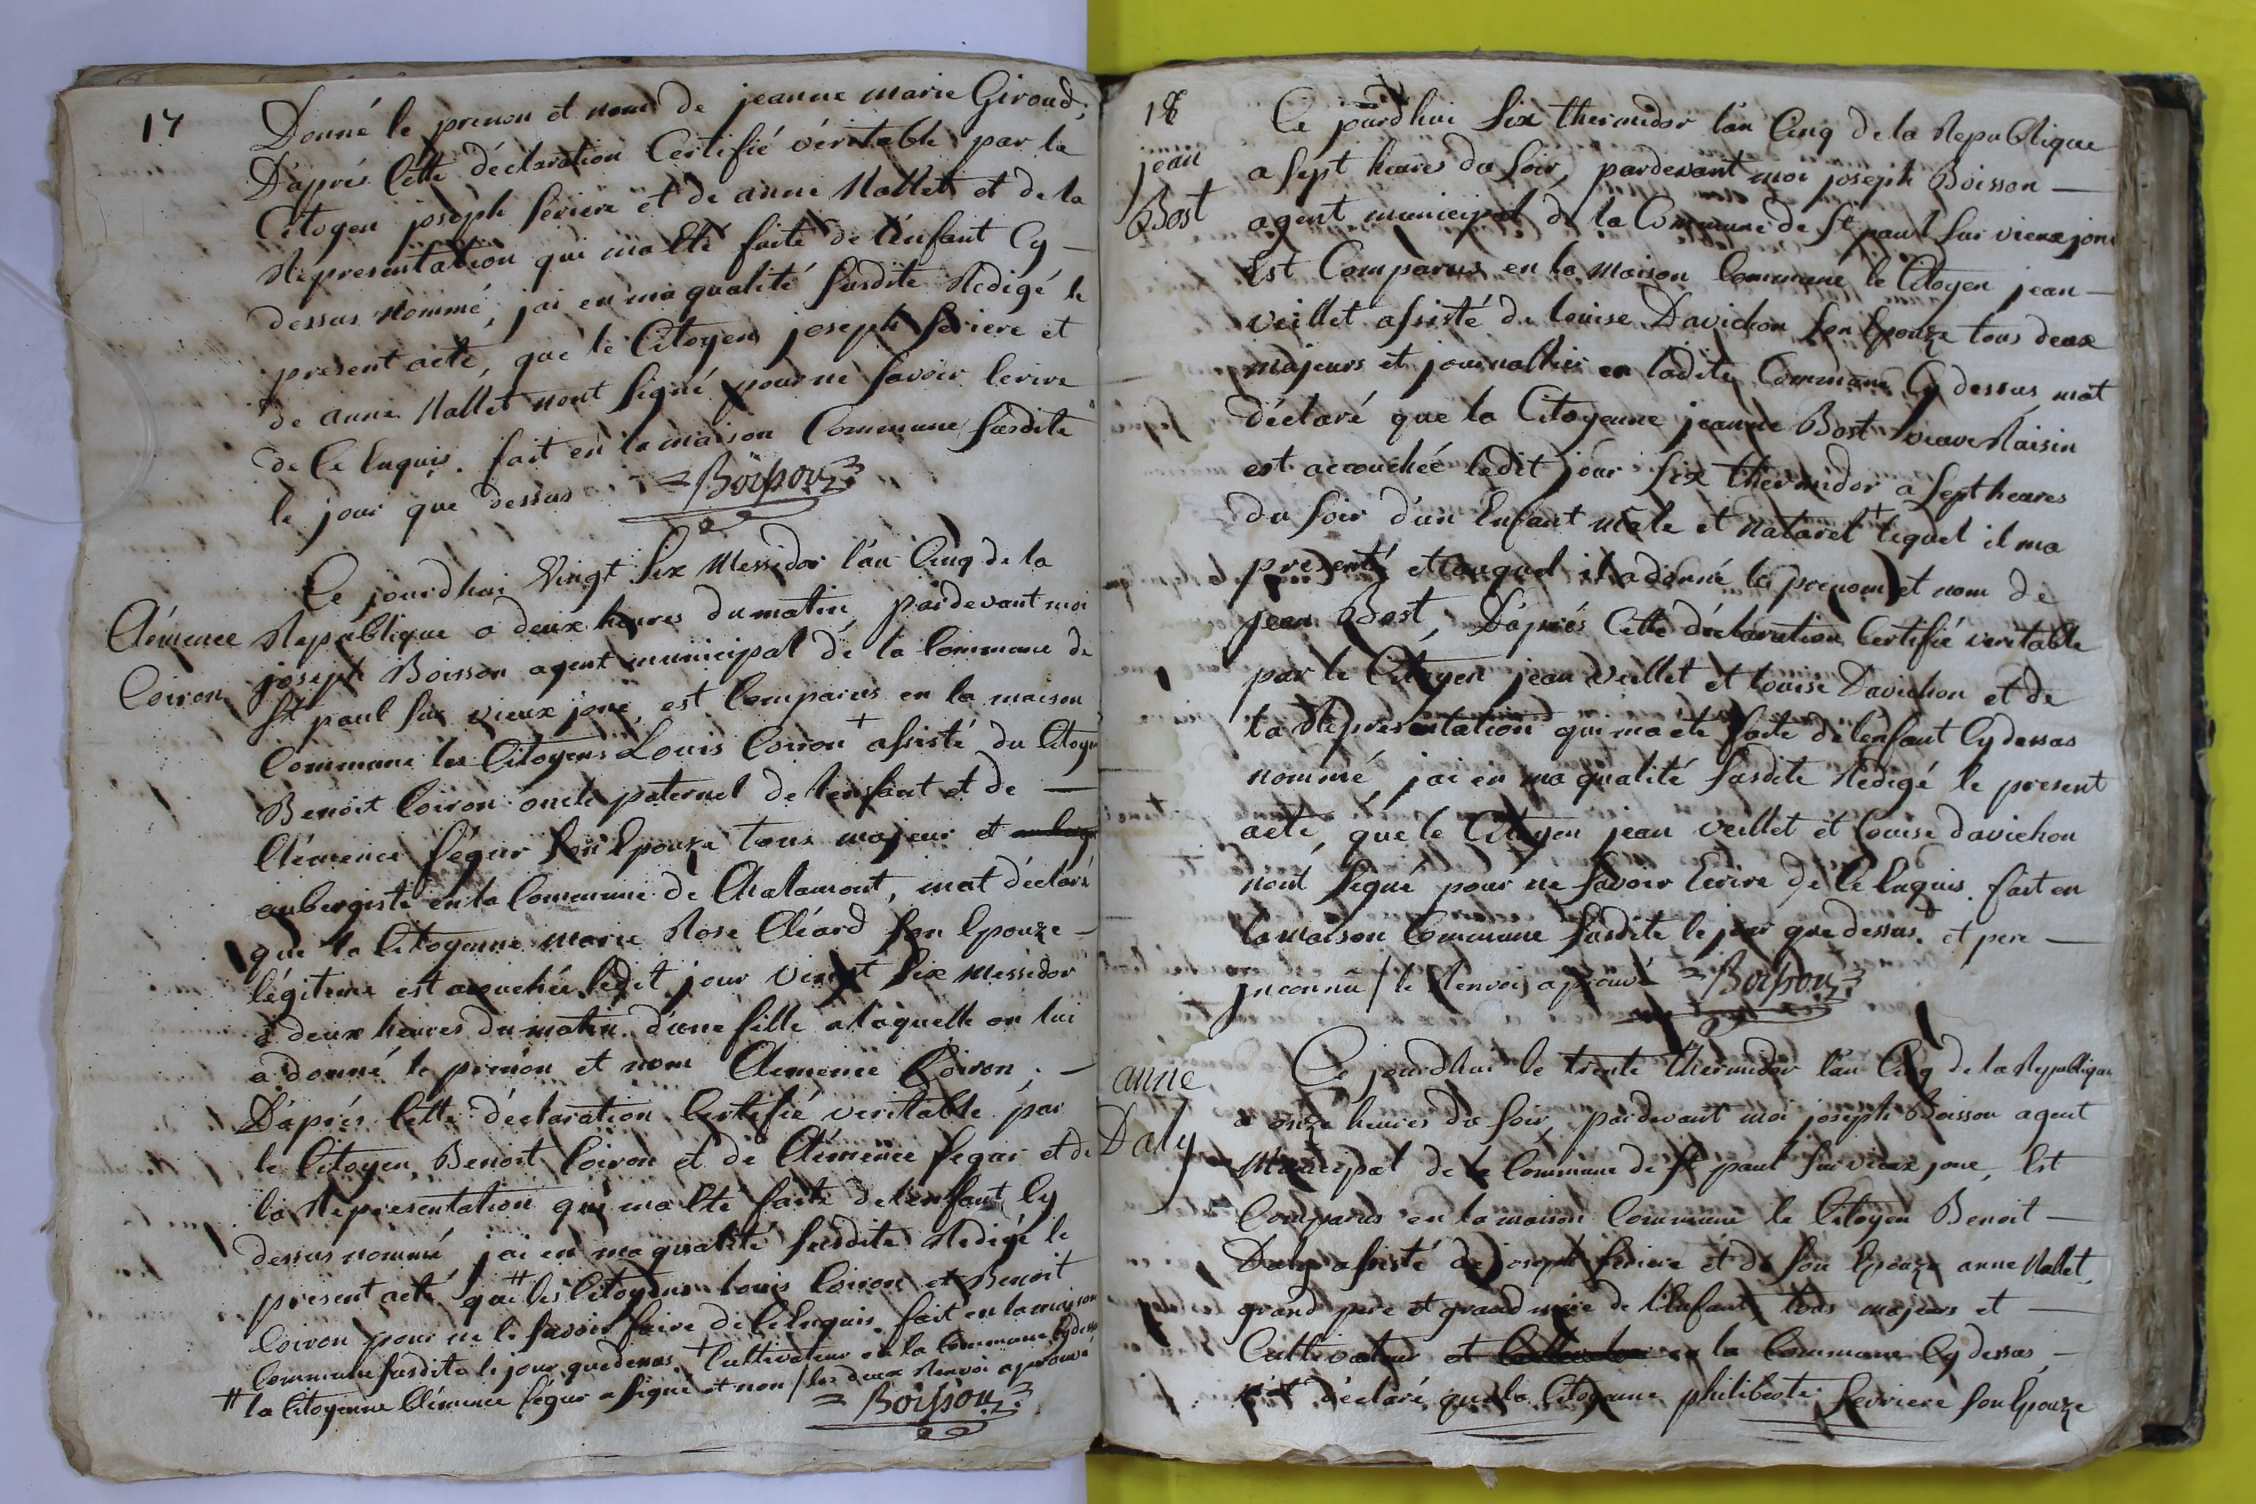 17
Donné le prenon et nom de jeanne marie Giroud;
D'aprés Cette déclaration Certifié véritable par le
Citoyen joseph feriere et de anne Nallet et de la
Representation qui ma Eté faite de l'enfant Cy —
dessus Nommé, jai en ma qualité susdite Redigé le
present acte, que le Citoyen joseph feriere et
de anne Nallet nont signé pour ne savoir Ecrire
de Ce Enquis. fait en la maison Commune susdite
le jour que dessus Boisson
Clémence
Coiron
Ce jourdhui Vingt Six Messidor l'an Cinq de la
Republique a deux heures du matin, pardevant moi
joseph Boisson agent municipal de la Commune de
St paul sur vieux jonc, est Comparus en la maison
Commune les Citoyens Louis Coiron + assisté du Citoyen
Benoit Coiron oncle paternel de l'enfant et de —
Clémence Ségur son Epouze tous majeur et
aubergiste en la Commune de Chalamont, mat déclaré
que la Citoyenne marie Rose Cléard son Epouze —
légitime est acouchée ledit jour Vingt Six Messidor
a deux heures du matin d'une fille a laquelle on lui
a donné le prenon et nom Clemence Coiron; —
D'aprés Cette déclaration Certifié veritable par
le Citoyen Benoit Coiron et de Clémence Segur et de
la Representation qui ma Eté faite de l'enfant Cy
dessus nommé jai en ma qualité susdite Redigé le
present acte # que les Citoyens louis Coiron et Benoit
Coiron pour ne le savoir faire de Ce Enquis. fait en la maison
Commune susdite le jour que dessus. + Cultivateur en la Commune Cy dessus
# la Citoyenne Clémence Ségur a signé et non / les deux Renvoi aprouvé
Boisson
18
jean
Bost
Ce jourdhui Six thermidor l'an Cinq de la Republique
a Sept heures du soir, pardevant moi joseph Boisson —
agent municipal de la Commune de St paul sur vieux jonc
Est Comparus en la Maison Commune le Citoyen jean —
veillet assisté de louise Davichon son Epouze tous deux
majeurs et journallier en ladite Commune Cy dessus mat
déclaré que la Citoyenne jeanne Bost veuve Raisin
est accouchée ledit jour Six thermidor a Sept heures
du soir d'un Enfant male et naturel + lequel il ma
presenté et auquel il a donné les prenom et nom de
jean Bost, D'aprés Cette déclaration Certifié veritable
par le Citoyen jean veillet et louise Davichon et de
la Representation qui ma été faite de lenfant Cy dessus
nommé, jai en ma qualité susdite Redigé le present
acte, que le Citoyen jean veillet et louise davichon
n'ont signé pour ne savoir Ecrire de Ce Enquis. fait en
la maison Commune susdite le jour que dessus. + et pere —
jnconnu / le Renvoi aprouvé Boisson
anne
Daly
Ce jourdhui le trente thermidor l'an Cinq de la Republique
a onze heures du soir, pardevant moi joseph Boisson agent
Municipal de la Commune de St paul sur vieux jonc, Est
Comparus en la maison Commune le Citoyen Benoit —
Daly assisté de joseph feriere et de son Epouze anne Nallet,
grand pere et grand mére de l'Enfant tous majeurs et —
Cultivateur et Cultivateur en la Commune Cy dessus, —
m'at déclaré que la Citoyenne philiberte ferriere son Epouze